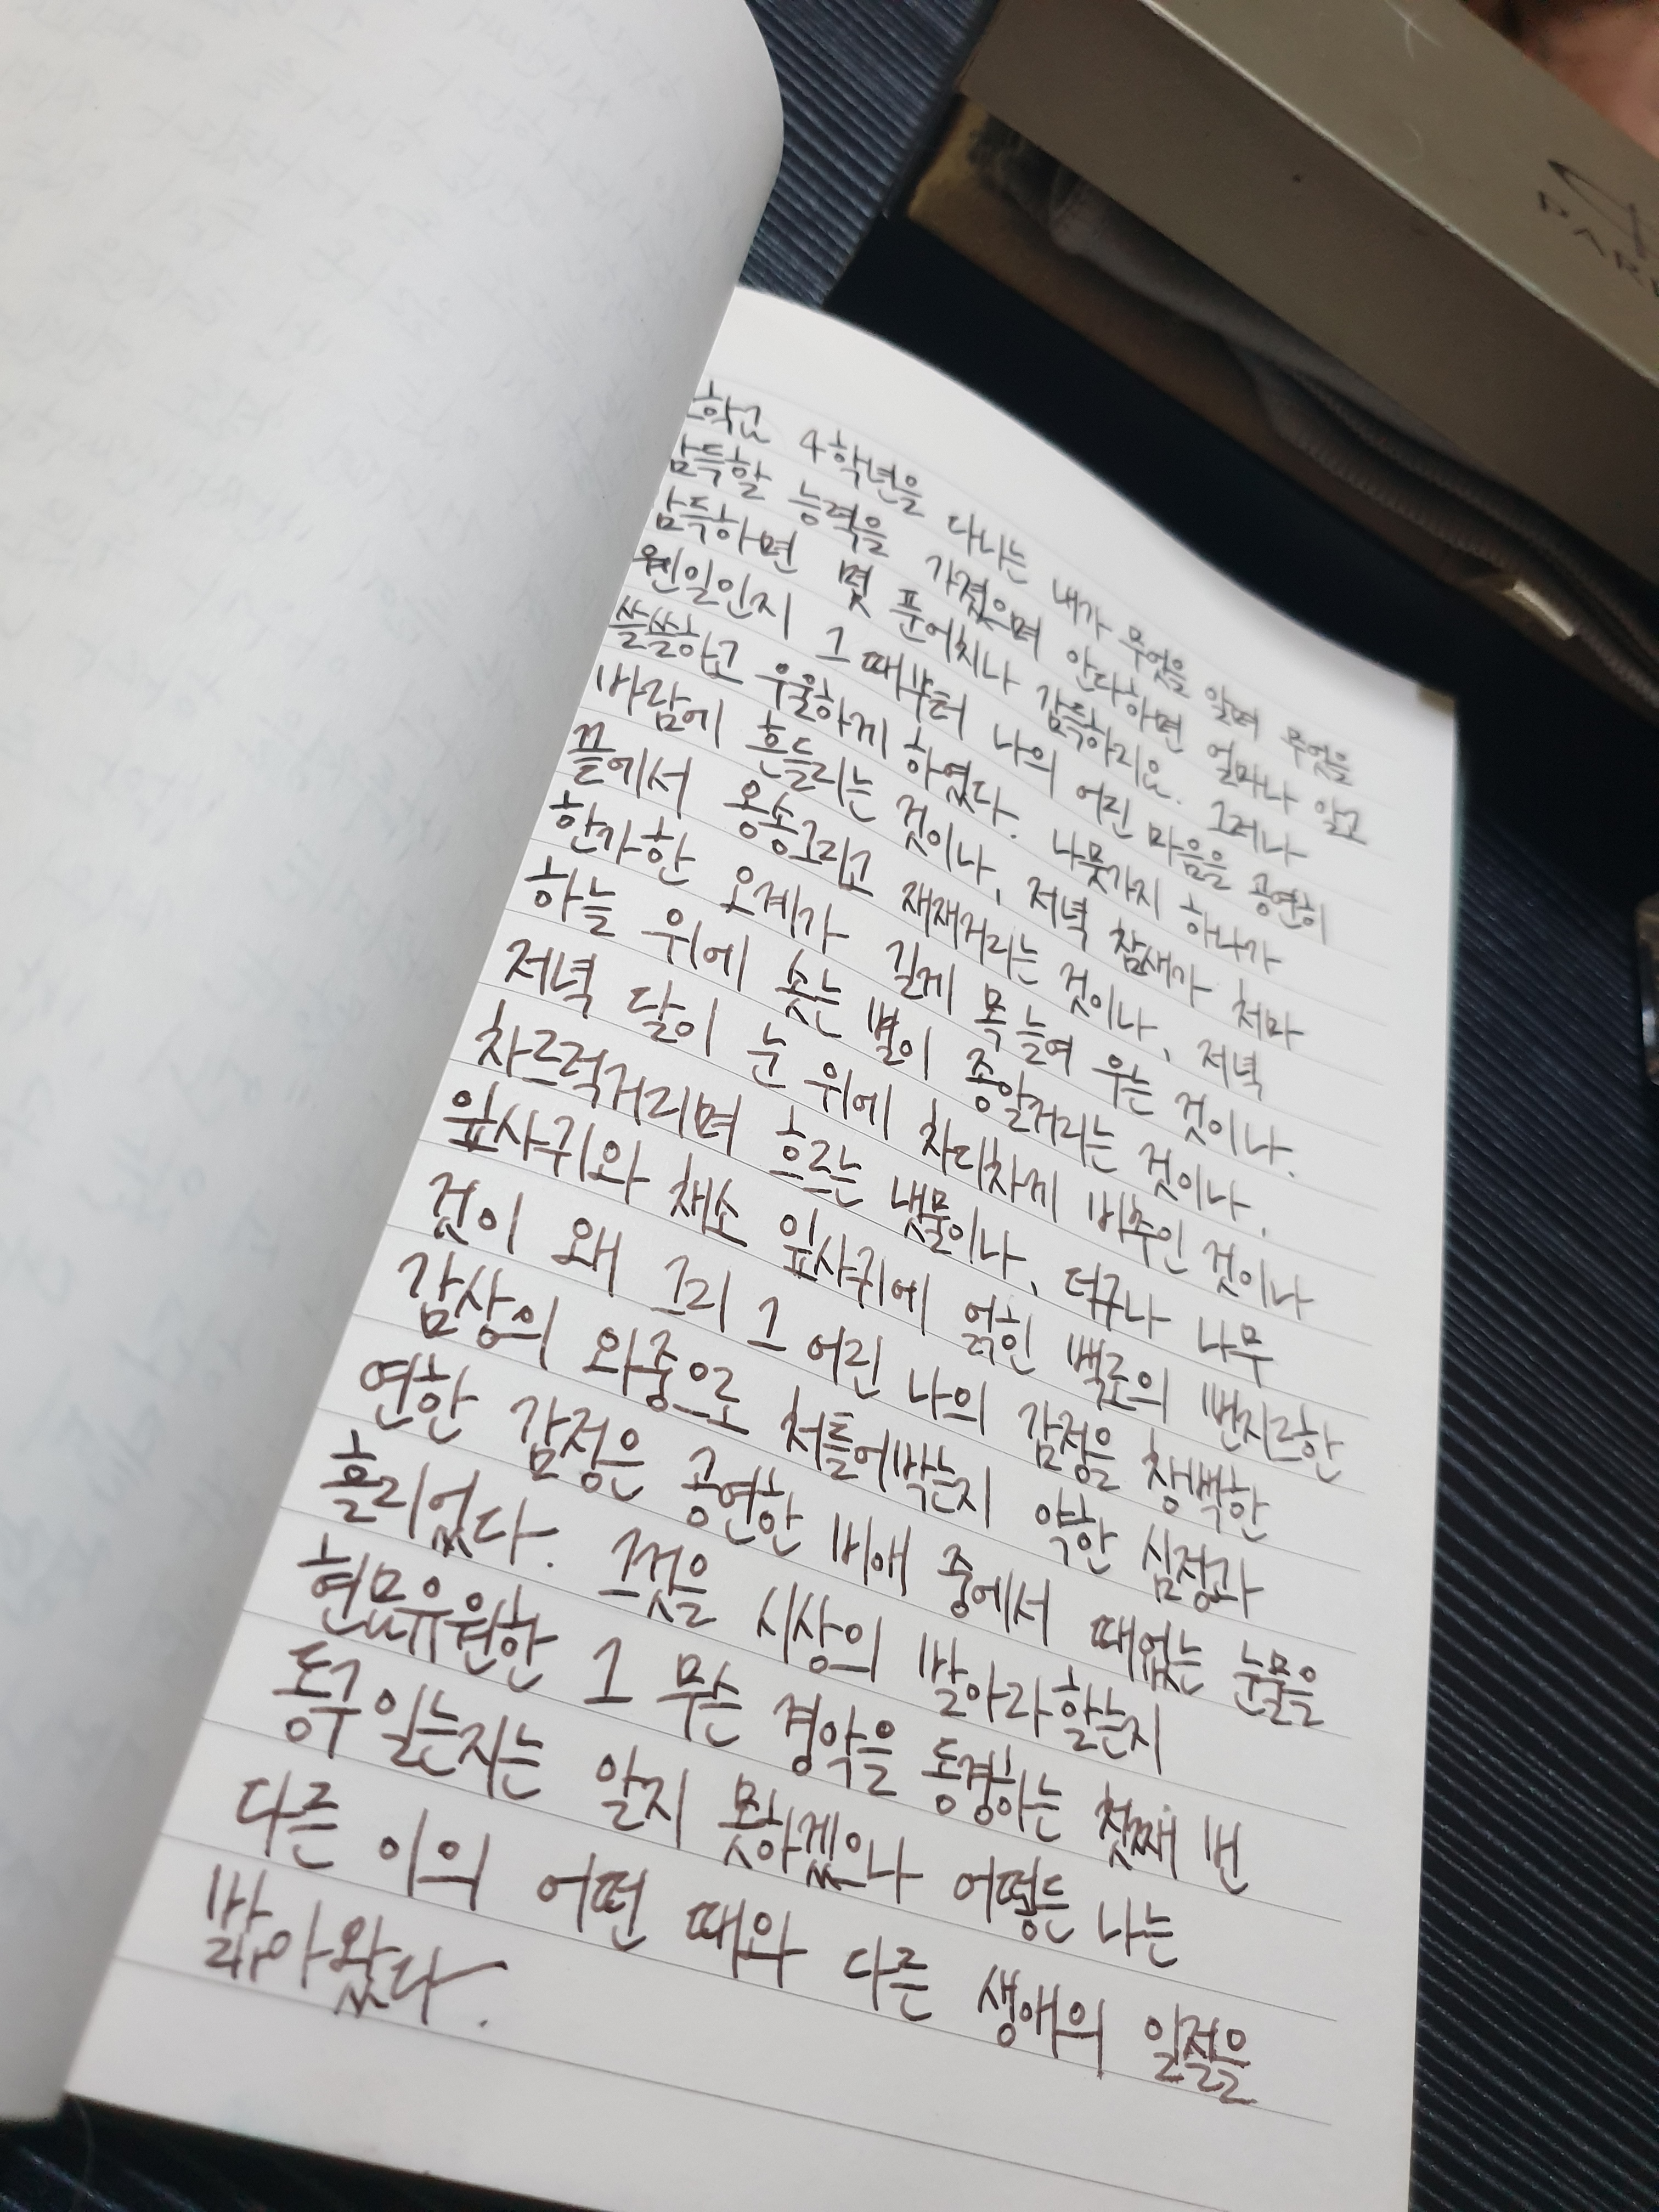 학교 4학년을 다니는 내가 무엇을 알며 무엇을
감득할 능력을 가졌으며 안다하면 얼마나 알고
감득하면 몇 푼어치나 감득하리요. 그러나
웬일인지 그때부터 나의 어린 마음을 공연히
쓸쓸하고 우울하게 하였다. 나뭇가지 하나가
바람에 흔들리는 것이나, 저녁 참새가 처마
끝에서 옹송그리고 재재거리는 것이나, 저녁
한가한 오계가 길게 목늘여 우는 것이나.
하늘 위에 솟는 별이 종알거리는 것이나,
저녁 달이 눈 위에 차디차게 비추인 것이나
차르럭거리며 흐르는 냇물이나, 더구나 나무
잎사귀와 채소 잎사귀에 얽힌 백로의 뻔지르한
것이 왜 그리 그 어린 나의 감정을 창백한
감상의 와중으로 처틀어박는지 약한 심정과
연한 감정은 공연한 비애 중에서 때없는 눈물을
흘리었다. 그것을 시상의 발아라할는지
현묘유원한 그 무슨 경악을 동경하는 첫째 번
동구일는지는 알지 못하겠으나 어떻든 나는
다른 이의 어떤 때와 다른 생애의 일절을
밟아왔다.